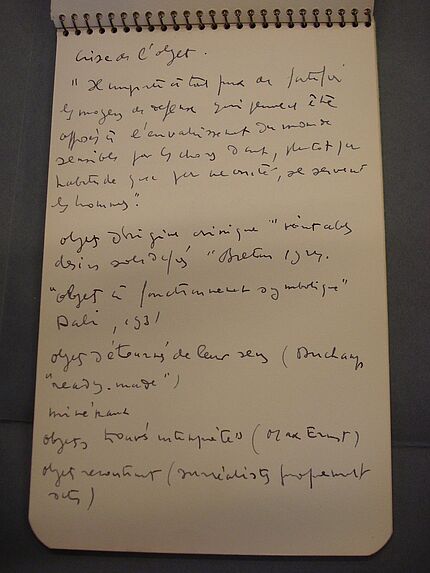 Crise de l'objet.
"Il importe à tout prix de fortifier
les moyens de défense qui peuvent être
opposés à l'envahissement du monde
sensible par les choses dont, plutôt par
habitude que par nécessité, se servent
les hommes".
objets d'origine onirique "véritables
désirs solidifiés" Breton
"objet à fonctionnement symbolique"
Dali, 1931
objets détournés de leur sens (Duchamp
"ready-made")
minéraux
objets trouvés interprétés (Max Ernst)
objets (surréalistes proprement
dits)